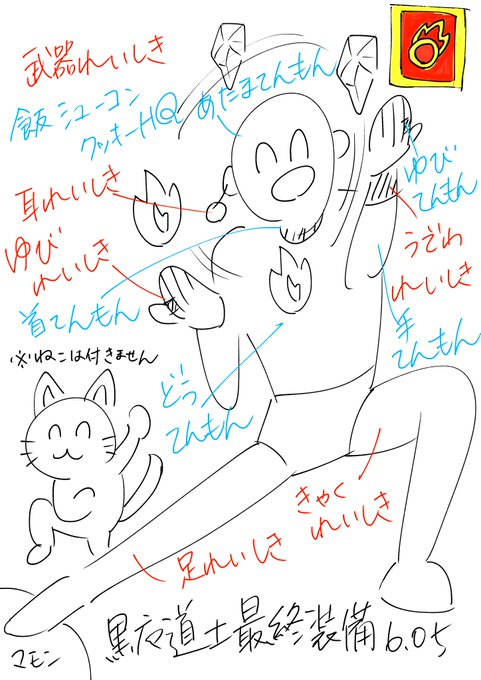 武器れいしき
飯シューコン
クッキーHQ
あたまてんもん
耳れいしき
ゆび
てんもん
ゆび
れいしき
うでわ
れいしき
首てんもん
手
てんもん
※ねこは付きません
どう
てんもん
きゃく
れいしき
足れいしき
マモン
黒魔道士最終装備6.05